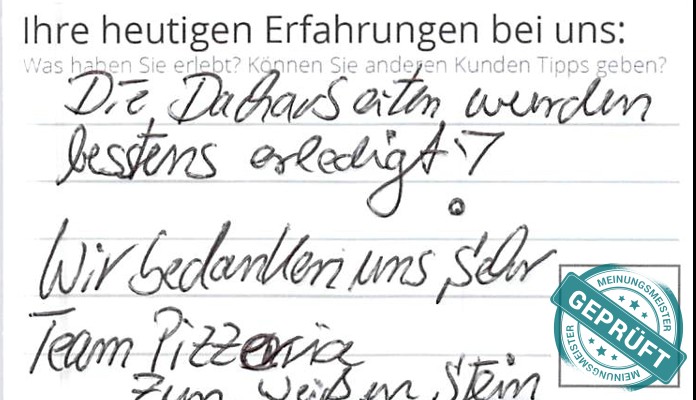 Ihre heutigen Erfahrungen bei uns:
Was haben Sie erlebt? Können Sie anderen Kunden Tipps geben?
Die Dacharbeiten wurden
besstens erledigt!
Wir bedanken uns sehr
Team Pizzeria
zum weißen Stein
MEINUNGSMEISTER
GEPRÜFT
MEINUNGSMEISTER
MEINUNGSMEISTER